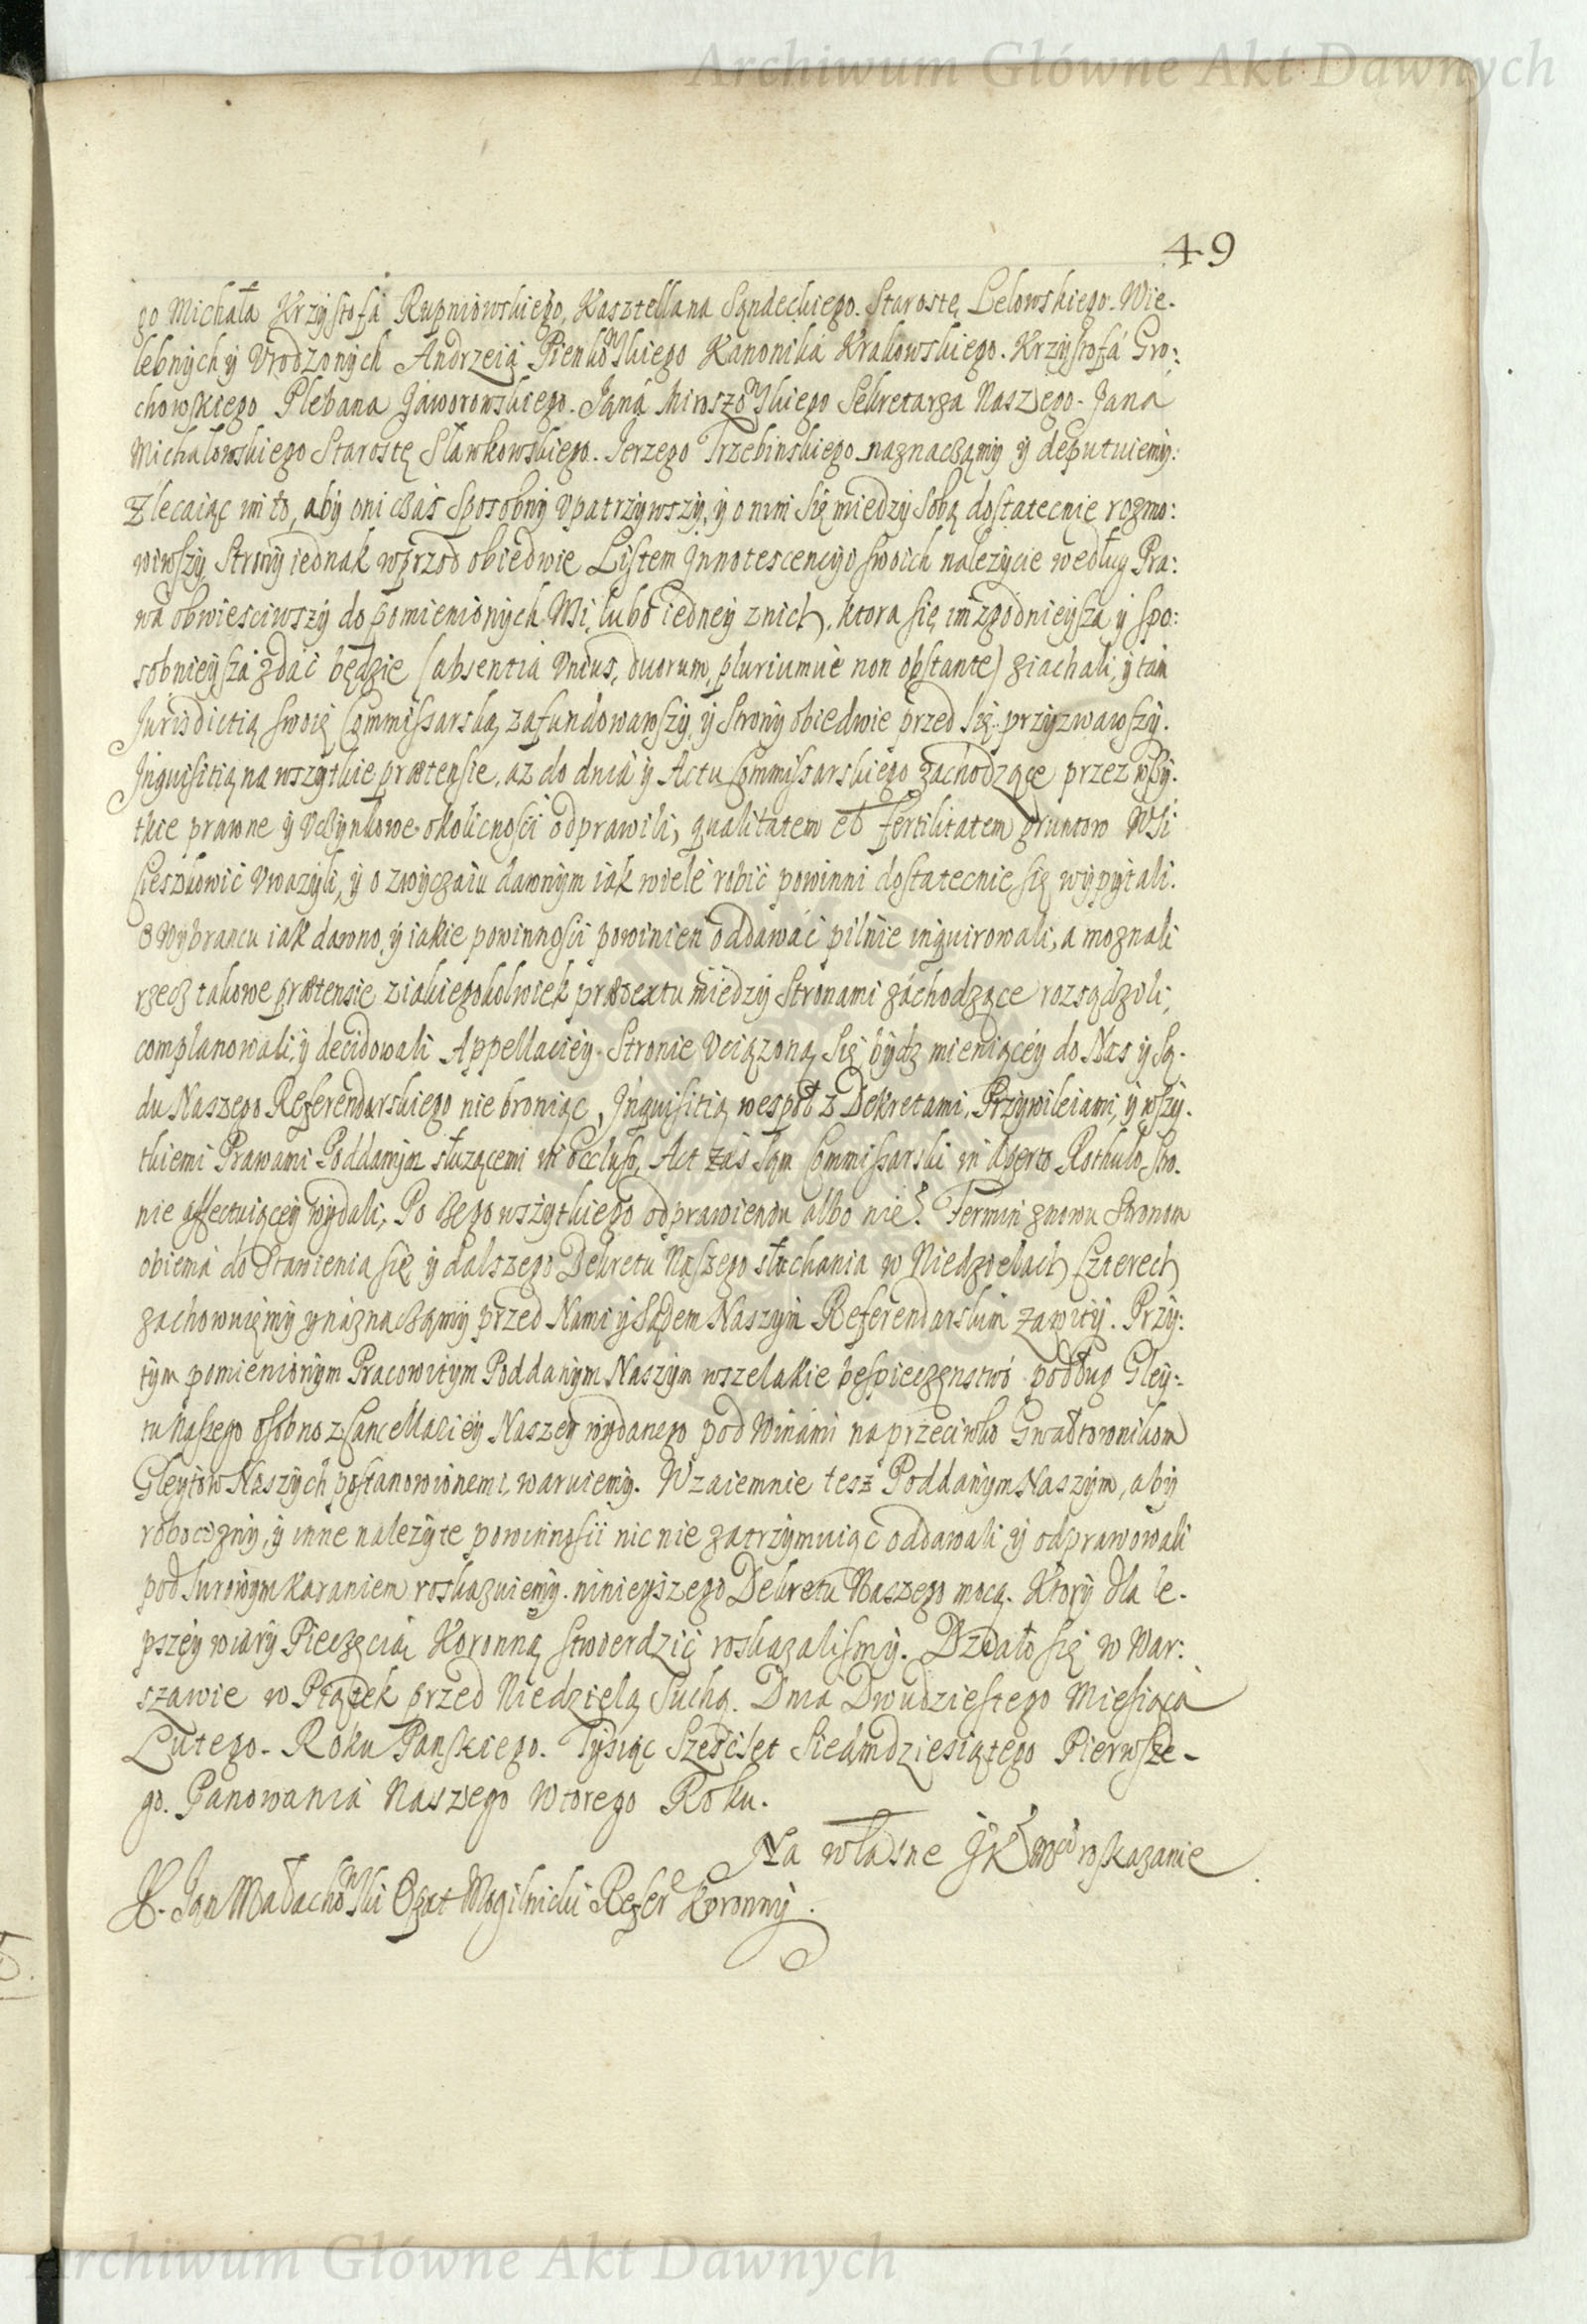 Archiwum Główne Akt Dawnych
49
go Michała Krzysztofa Rupniowskiego, Kasztellana Sąndeckiego. Starostę Lelowskiego. Wie-
lebnych y Vrodzonych Andrzeia Pienkowskiego Kanonika Krakowskiego. Krzysztofa Gro:
chowskiego Plebana Jaworowskiego. Jana Miroszowskiego Sekretarza Naszego. Jana
Michałowskiego Starostę Sławkowskiego. Jerzego Trzebinskiego naznaczamy y deputuiemy:
Zlecaiąc im to, aby oni czas sposobny vpatrzywszy, y o nim się miedzy sobą dostatecnie rozmo:
wiwszy, Strony iednak wprzod obiedwie Listem Innotescencyi swoich nalezycie według Pra:
wa obwiesciwszy do pomienionych Wsi, lubo iedney znich, ktora się im zgodnieysza y spo:
sobnieysza zdać będzie (absentia Vnius, duorum, pluriumue non obstante) ziachali, y tam
Jurisdictią swoię Commissarską zafundowawszy, y Strony obiedwie przed się przyzwawszy.
Inquisitią na wszytkie prætensie, az do dnia y Actu Commissarskiego zachodzące przez wszy-
tkie prawne y vczynkowe okolicnosci odprawili, qualitatem et fertilitatem gruntow Wsi
Cieszkowic vwazyli, y o zwyczaiu dawnym iak wiele robić powinni dostatecnie się wypytali.
O Wybrancu iak dawno, y iakie powinnosci powinien oddawać pilnie inquirowali, a moznali
rzecz takowe prætensie ziakiegokolwiek prætextu miedzy Stronami zachodzące rozsądzili,
complanowali, y decidowali Appellaciey Stronie vciązoną się bydz mieniącey do Nas y Są-
du Naszego Referendarskiego nie broniąc, Inquisitią wespoł z Dekretami, Przywileiami, y wszy-
tkiemi Prawami Poddanym słuzącemi in occluso, Act zas sąm Commissarski in aperto Rothulo Stro-
nie affectuiącey wydali, Po czego wszytkiego odprawieniu albo nie. Termin znowu Stronom
obiema do stawienia się y dalszego Dekretu Naszego słuchania w Niedzielach Czterech
zachowuiemy y naznaczamy przed Nami y Sądem Naszym Referendarskim zawity. Przy:
tym pomienionym Pracowitym Poddanym Naszym wszelakie bespieczenstwo podług Gley:
tu Naszego osobno z Cancellariey Naszey wydanego pod Winami na przeciwko Gwałtownikom
Gleytow Naszych postanowionemi waruiemy. Wzaiemnie tesz Poddanym Naszym, aby
robocizny, y inne nalezyte powinnosii nic nie zatrzymuiąc oddawali, y odprawowali
pod surowym karaniem roskazuiemy. ninieyszego Dekretu Naszego mocą. Ktory dla le-
pszey wiary Pieczęcią Koronną stwierdzić roskazalismy. Działo się w War:
szawie w Piątek przed Niedzielą Suchą. Dnia Dwudziestego Miesiąca
Lutego. Roku Panskiego. Tysiąc Szescset Siedmdziesiątego Pierwsze-
go. Panowania Naszego Wtorego Roku.
Na własne JK Mci roskazanie
X. Jan Małachowski Opat Mogilnicki Refer Koronny.
Archiwum Główne Akt Dawnych